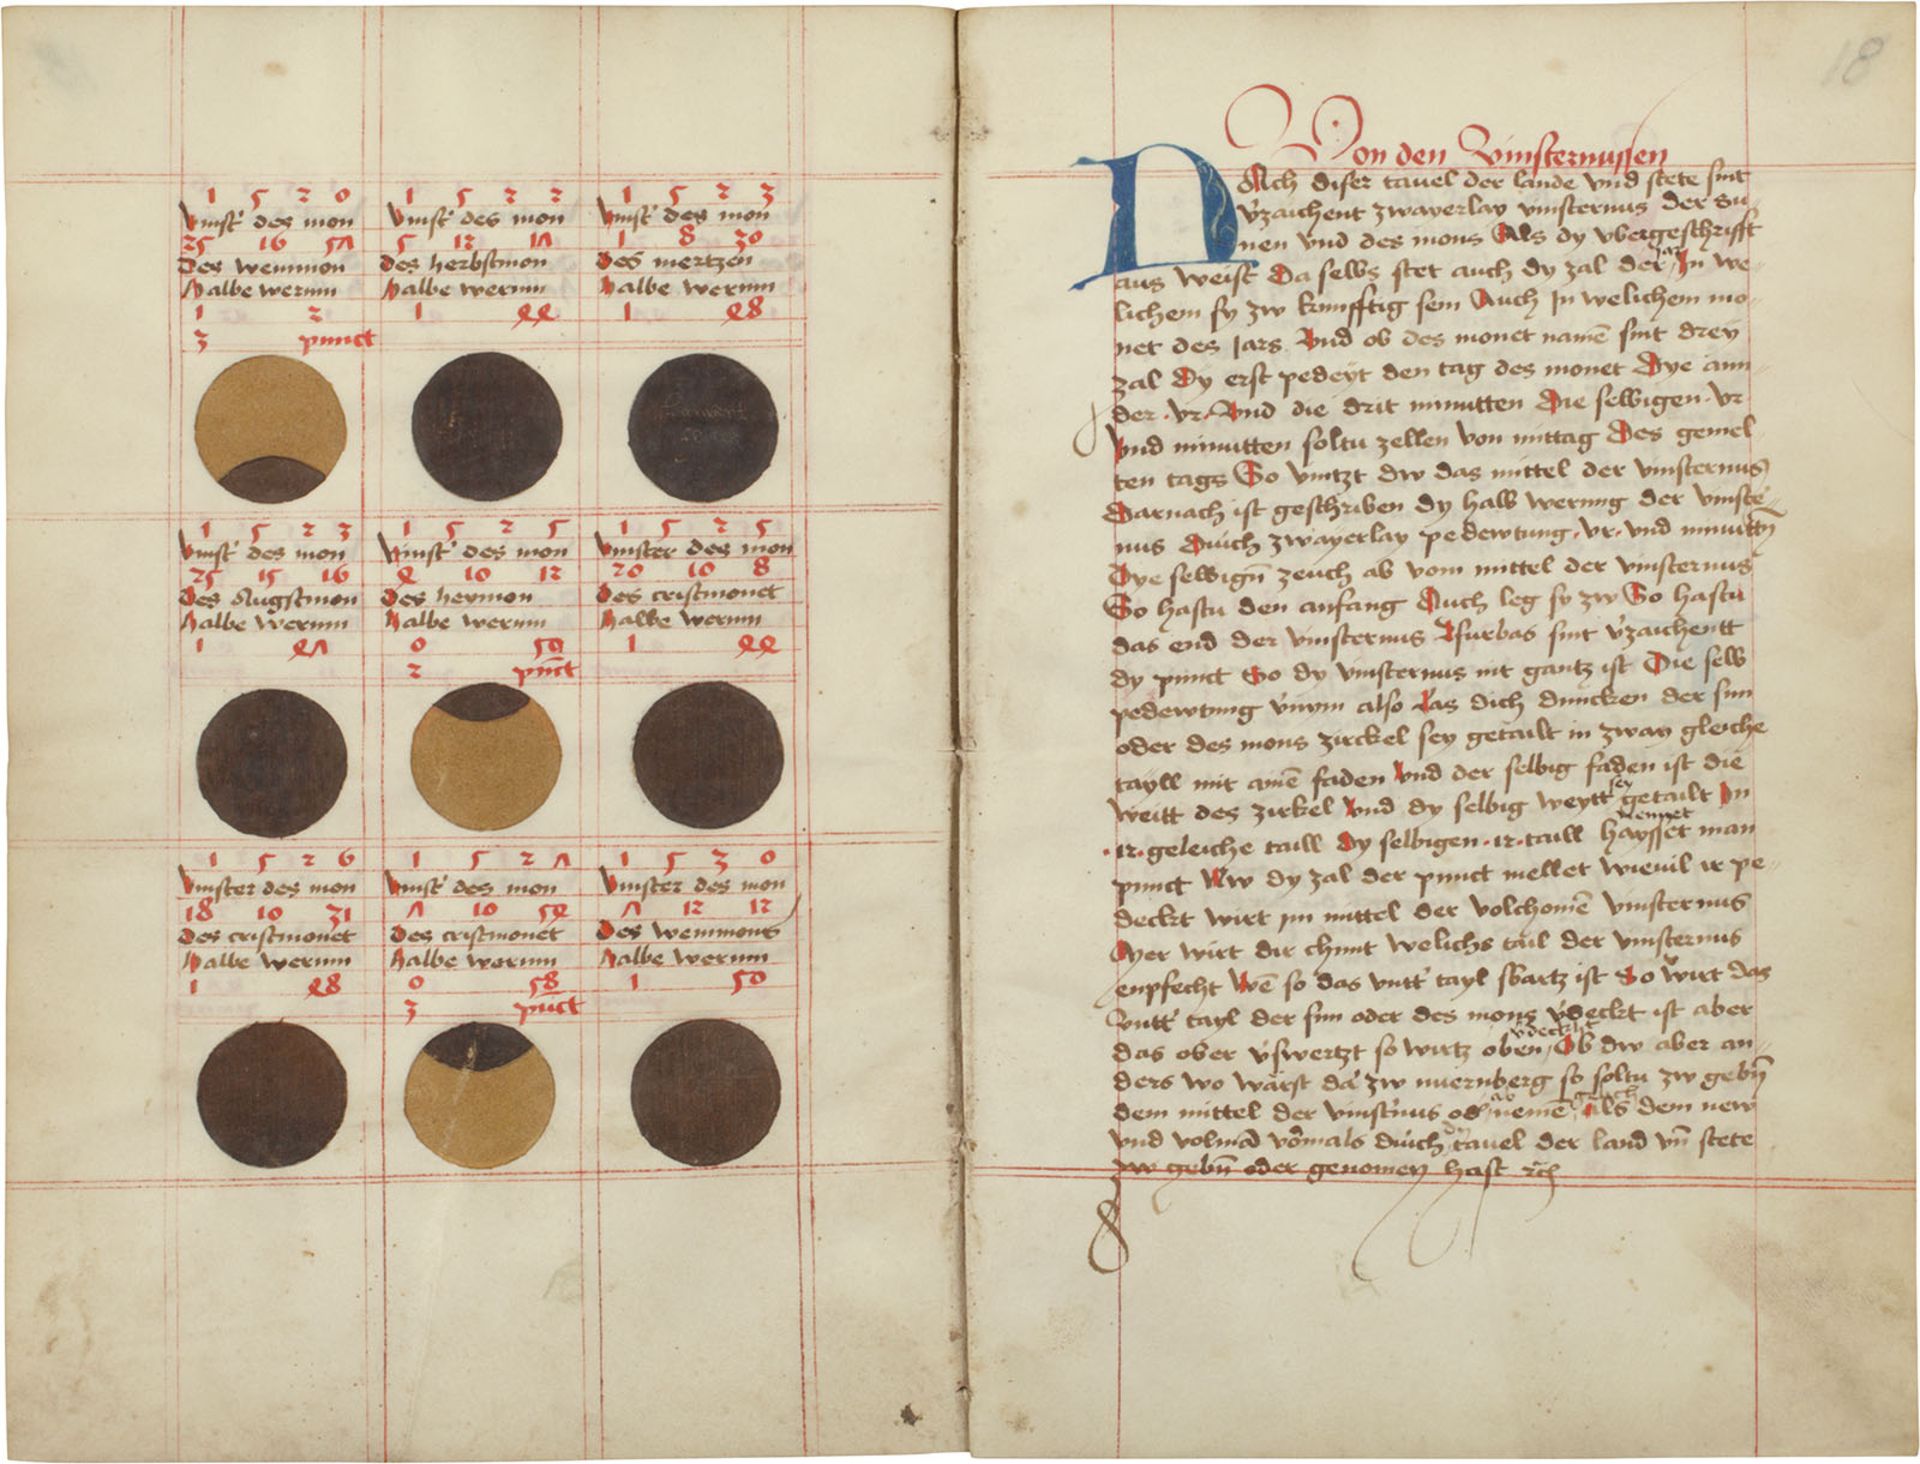 1 5 2 0
Vinst' des mon
25 16 57
Des weinmon
Halbe werun
1 2
3 punct
1 5 2 2
Vinst' des mon
5 12 17
des herbstmon
halbe werun
1 44
1 5 2 3
Vinst' des mon
1 8 30
Des mertzen
halbe werun
1 48
1 5 2 3
Vinst' des mon
25 15 16
Des Augstmon
Halbe werun
1 47
1 5 2 5
Vinst' des mon
4 10 12
Des heymon
halbe werun
0 50
2 pūct
1 5 2 5
Vinster des mon
20 10 8
Des cristmonet
halbe werun
1 44
1 5 2 6
Vinster des mon
18 10 31
des cristmonet
Halbe werun
1 48
1 5 2 7
Vinst' des mon
7 10 54
des cristmonet
Halbe werun
0 58
3 pūct
1 5 3 0
Vinster des mon
7 12 12
Des weinmons
Halbe werun
1 50
18
Von den Vinsternussen
NAch diser tauel der lande vnd stete sint
v'zaichent zwayerlay vinsternus der Su-
nen vnd des mons Als dy vbergeschrifft
aus weist Da selbs stet auch dy zal der iar In we-
lichem sy zw kunfftig sein Auch In welichem mo-
net des Jars Vnd ob des monet namē sint drey
zal Dy erst pedeyt den tag des monet Dye ann-
der .vr. Vnd die drit minutten Die selbigen .vr
Vnd minutten soltu zellen von mittag Des gemel
ten tags So vintzt dw das mittel der vinsternus
Darnach ist geschriben dy halb werung der vinste-
nus Durch zwayerlay pedewtung .vr. vnd minuttn
Dye selbign zeuch ab vom mittel der vinsternus
So hastu den anfang Auch leg sy zw So hastu
das end der vinsternus Afurbas sint v'zaichentt
dy punct So dy vinsternus nit gantz ist Die selb
pedewtung v'nym also Las dich duncken der sun
oder des mons zirckel sey getailt in zway gleiche
tayll mit aimē faden Vnd der selbig faden ist die
weitt des zirkel Vnd dy selbig weytt sey getailt In
.12. geleiche taill Dy selbigen .12. taill haysset nennet man
punct Nw dy zal der punct mellet wieuil ir pe-
deckt wirt im mittel der volchomē vinsternus
Hyer wirt dir chunt welichs tail der vinsternus
enpfecht Wē so das vntt' tayl swartz ist So wirt das
Vntt' tayl der sun oder des mons v'deckt ist aber
das ober v'swertzt so wirtz oben v'deckht Ob dw aber an-
ders wo wärst dā zw nuernberg so soltu zw gebn̄
dem mittel der vinst'nus od' ab nemē gleich Als dem new
vnd volmā vormals durch dy tauel der land vn̄ stete
zw gebn̄ oder genomen hast etc